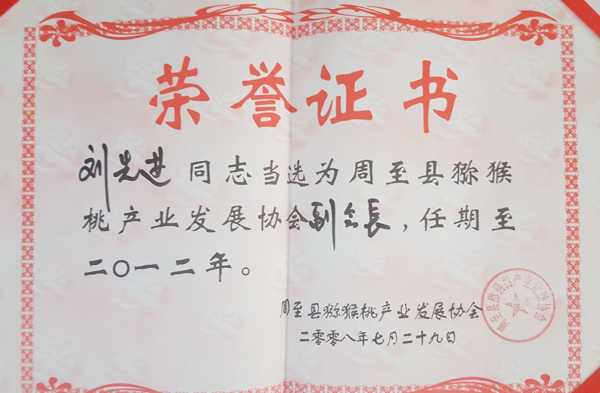 荣誉证书
刘先进同志当选为周至县猕猴
桃产业发展协会副会长，任期至
二〇一二年。
周至县猕猴桃产业发展协会
二零零八年七月二十九日
周至县猕猴桃产业发展协会